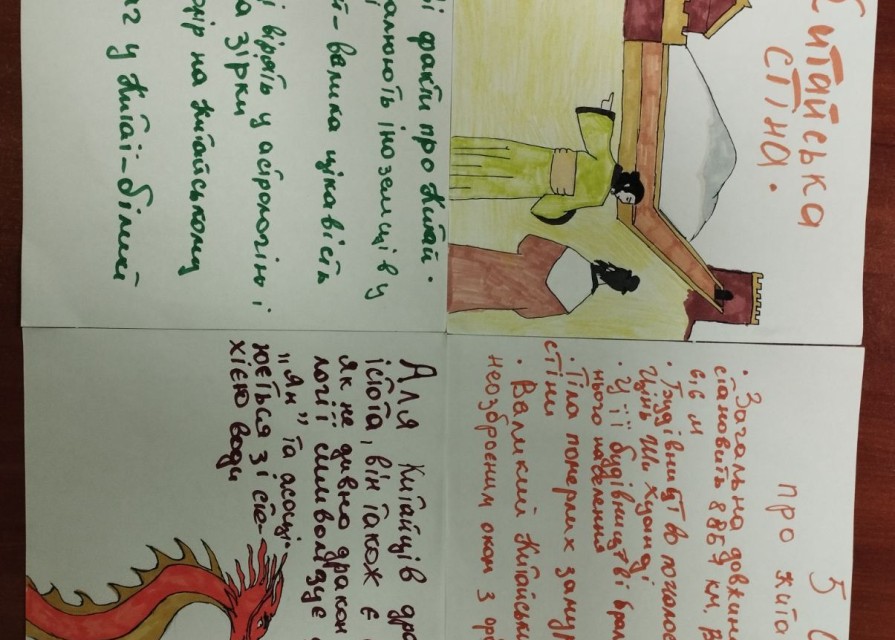 Китайська
стіна.
5
про
· Загальна
становить 8857 км,
6,6 м
· Будівництво
Цінь Ши Хуанді
· У її будівництві
нього населення
· Тіла померлих
стіни
· Великий
неозброєним оком з
факти про Китай.
іноземців у
- велика цікавість
вірять у астрологію і
зірки
на китайському
у Китаї - білий
Для Китайців
істота, він також є
Як не дивно дракон
логії символізує
„Ян” та асоці-
юється зі сті-
хією води